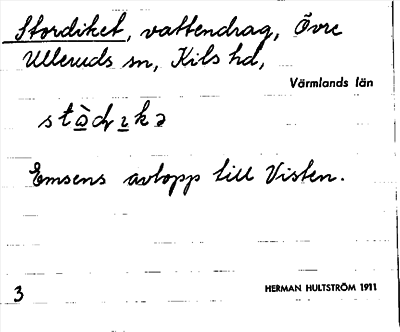 Stordiket, vattendrag, Övre
Ulleruds sn, Kils hd,
Värmlands län
Emsens avlopp till Visten.
3
HERMAN HULTSTRÖM 1911